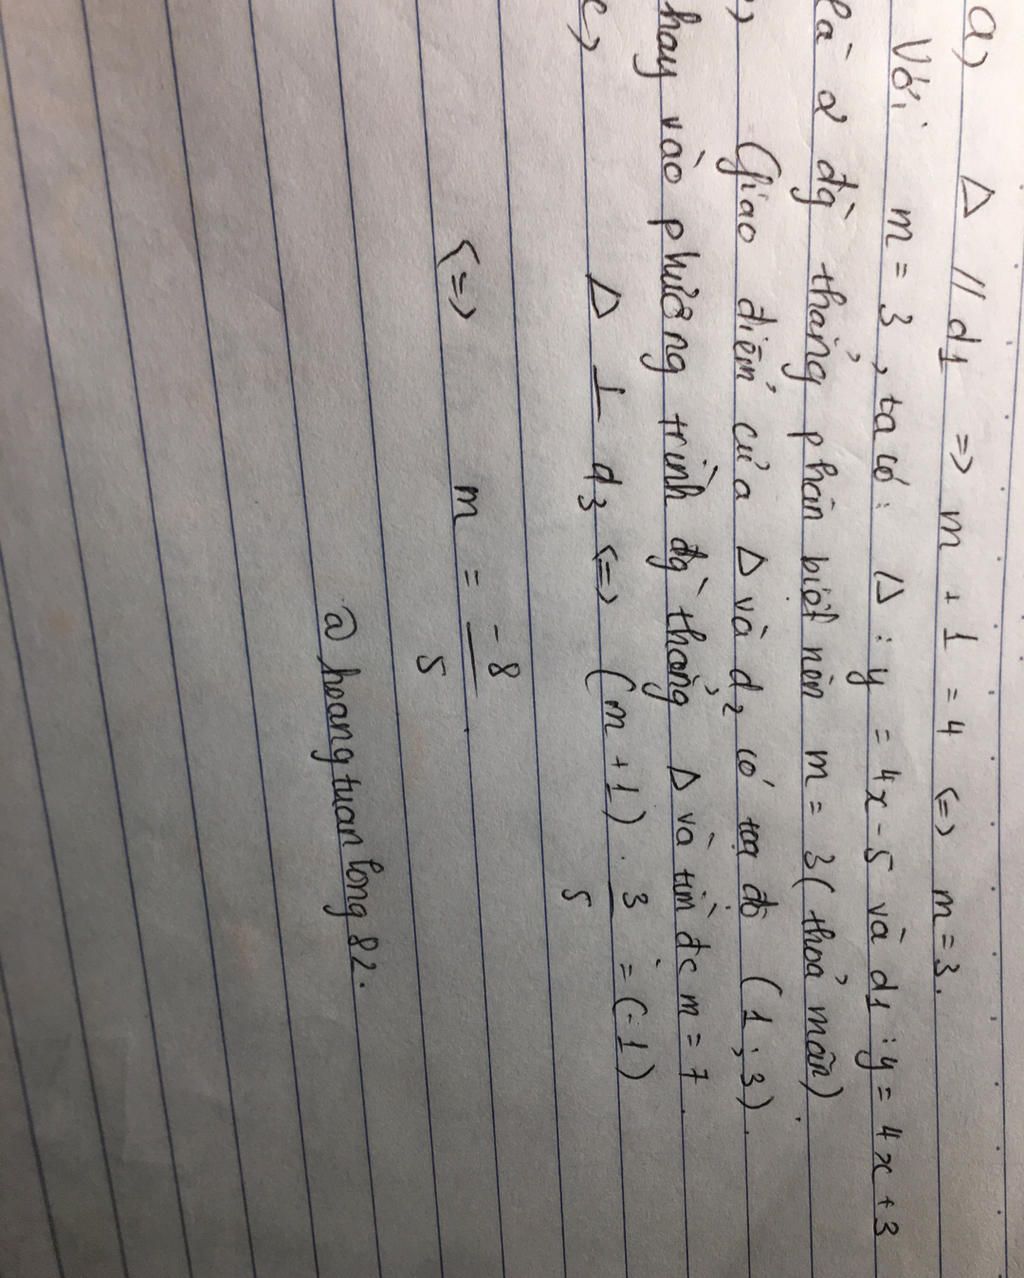 a) Δ // d1 => m + 1 = 4 <=> m = 3.
Với m = 3, ta có: Δ : y = 4x - 5 và d1 : y = 4x + 3
là 2 đg` thẳng phân biệt nên m = 3 (thoả mãn).
) Giao điểm của Δ và d2 có toạ độ (1 ; 3).
hay vào phương trình đg` thẳng Δ và tìm đc m = 7.
c) Δ ⊥ d3 <=> (m + 1) . 3/5 = (-1)
<=> m = -8/5
@ hoangtuanlong82.